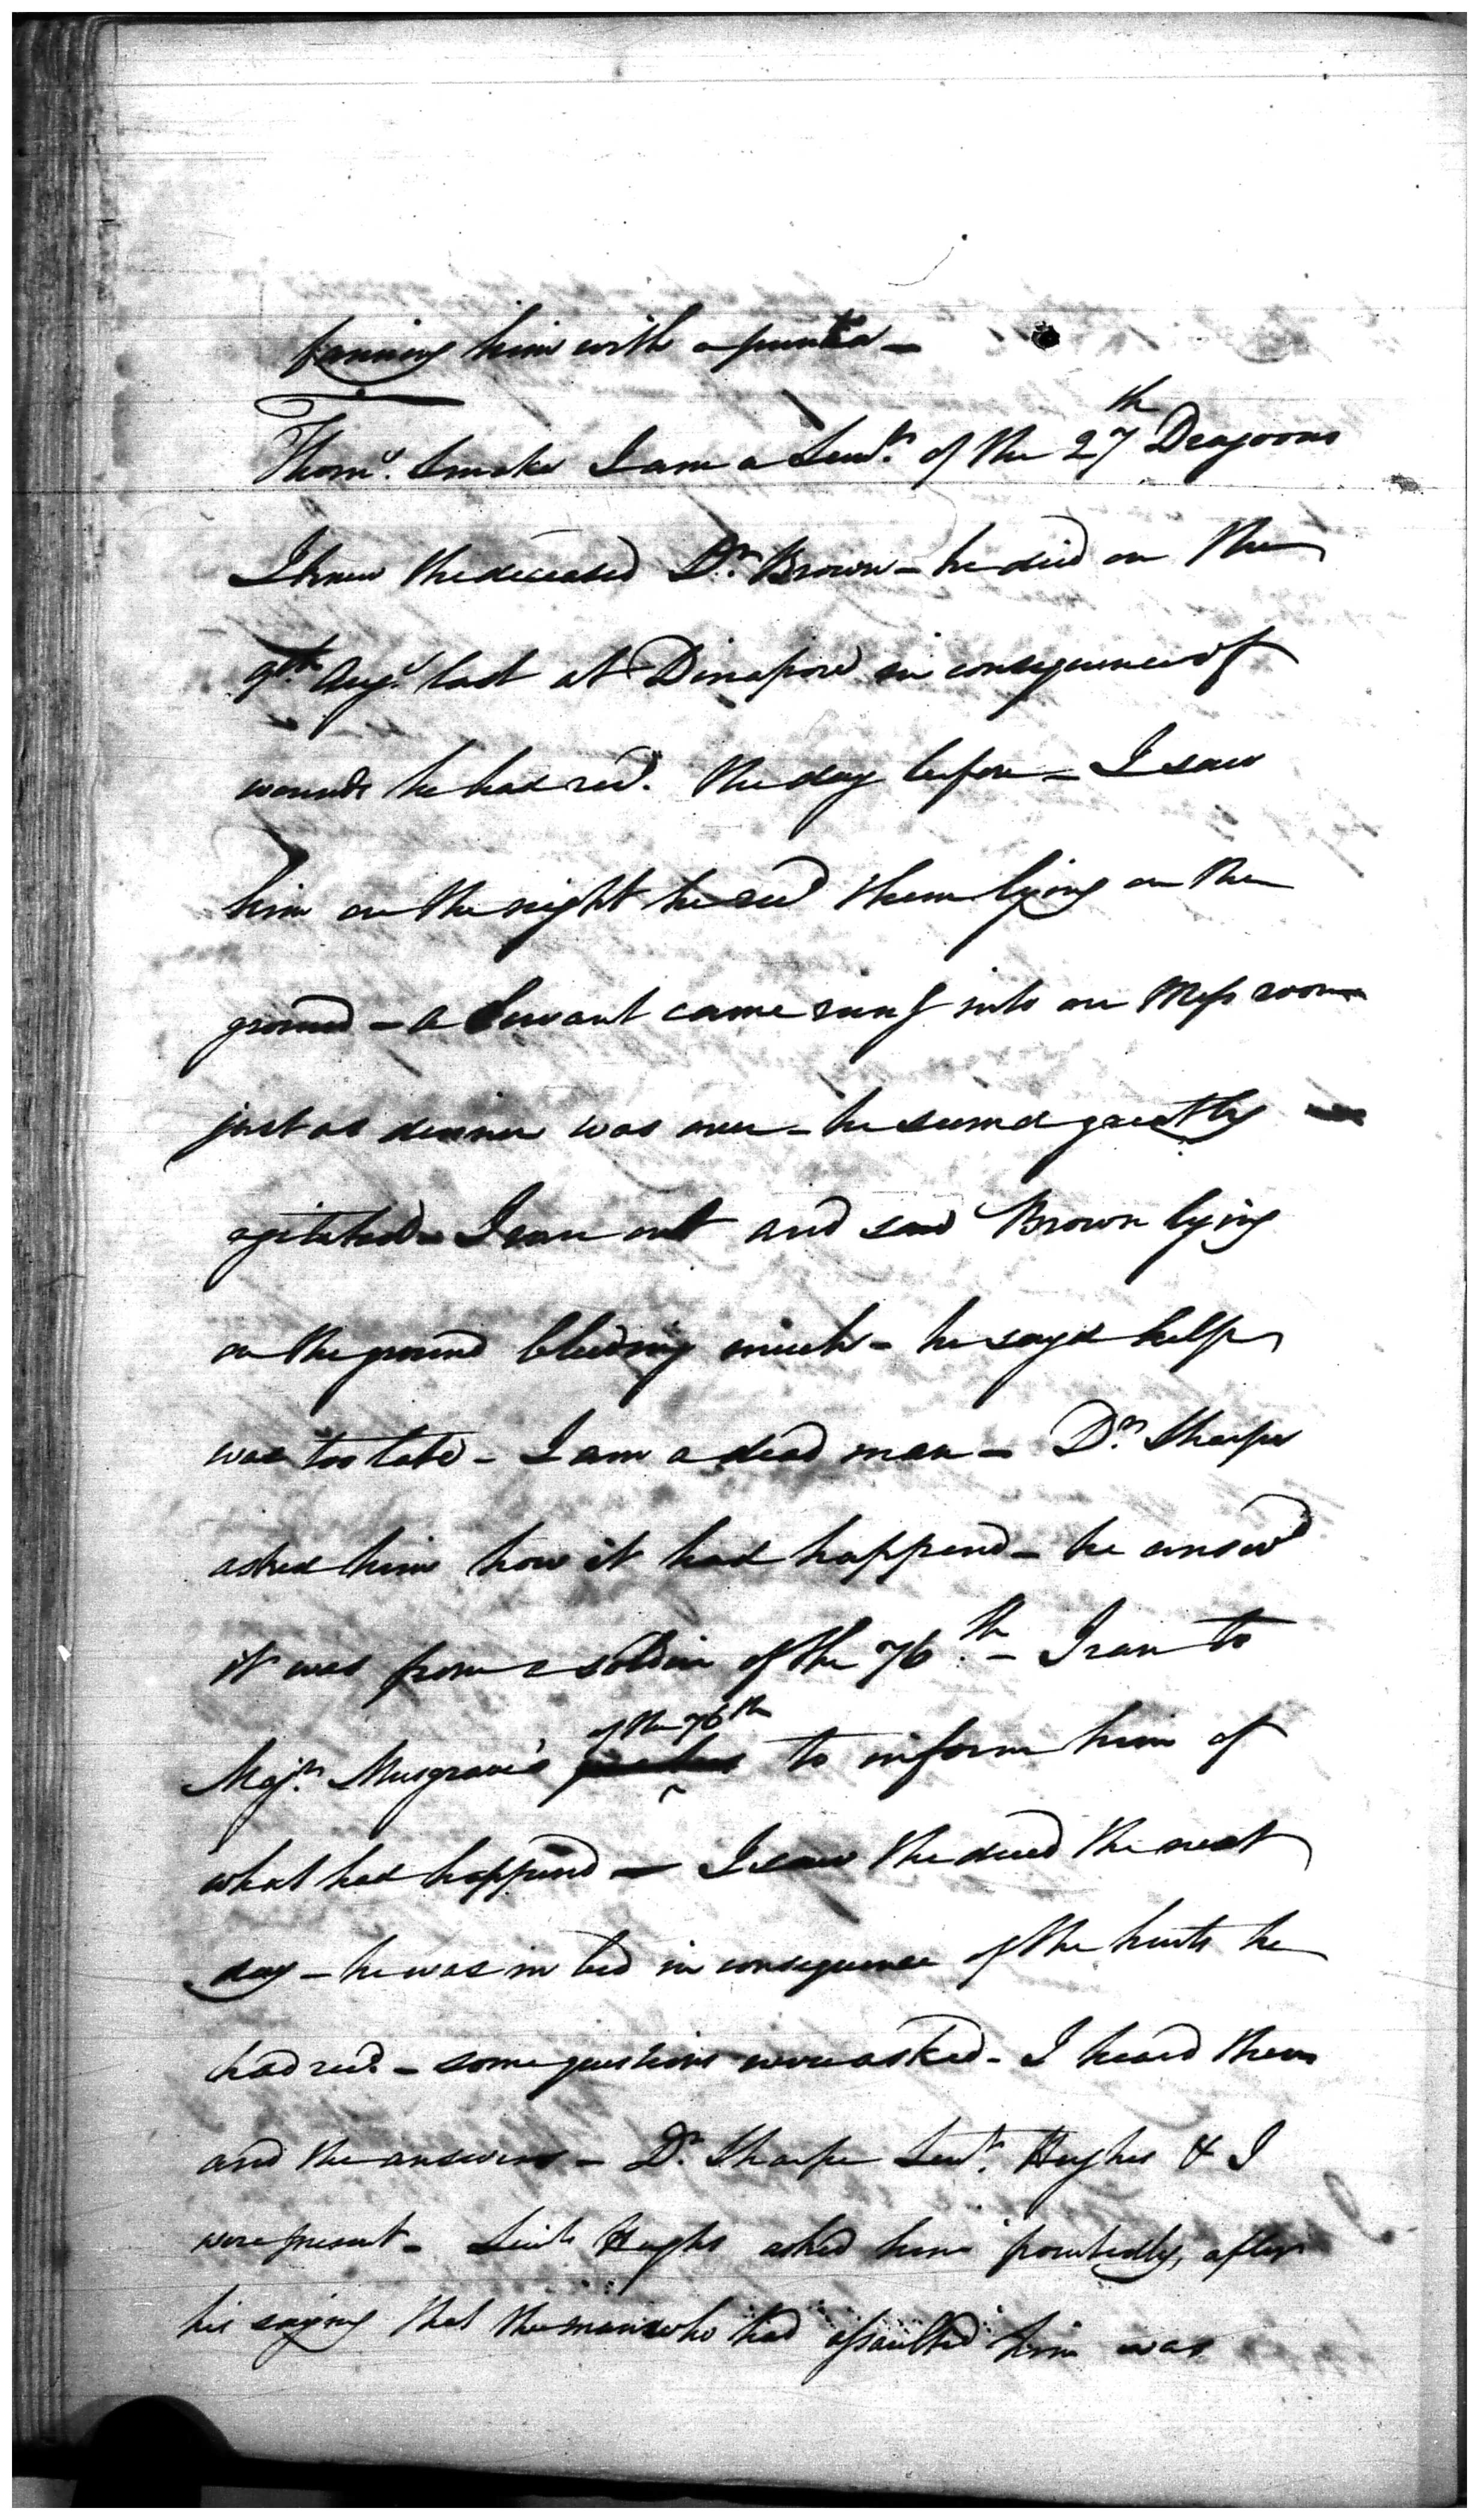 fanning him with a punka -
Thoms. Smoke I am a Leut. of the 27th Dragoons
I knew the deceased Dr. Brown - he died on the
9th Augt. last at Dinapore in consequence of
wounds he had recd. the day before - I saw
him on the night he recd them lying on the
ground - a Servant came rung into our Mess room
just as dinner was over - he seemd greatly
agitated - I ran out and saw Brown lying
on the ground bleeding much - he sayd help
was too late - I am a dead man - Dr. Sharpe
asked him how it had happend - he answd
it was from a soldier of the 76th. - I ran to
Majr. Musgrave's of the 76th to inform him of
what had happend - I saw the deced the next
day - he was in bed in consequence of the hurts he
had recd. - some questions were asked - I heard them
and the answers - Dr. Sharpe Leut. Hughes & I
were present - Leut. Hughs asked him pointedly, after
his saying that the man who had assaulted him was